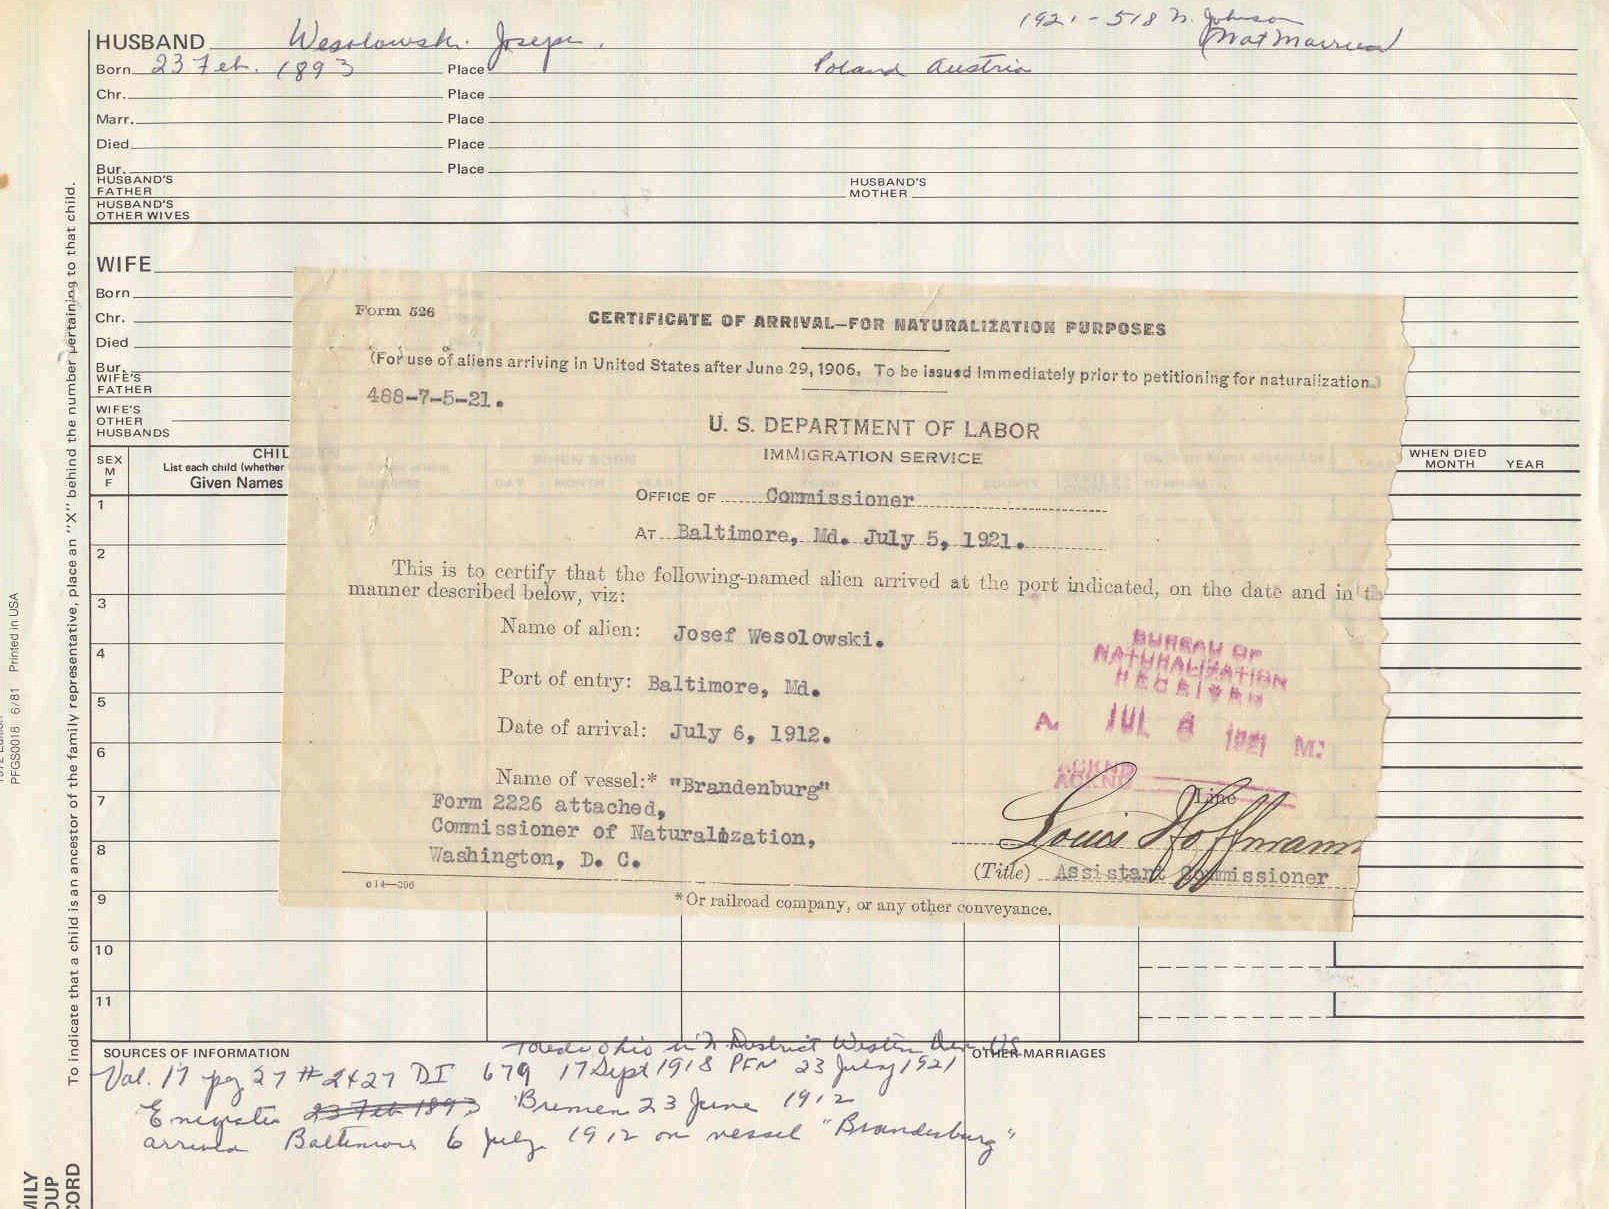 1921 - 518 N. Johnson
(Not Married)
HUSBAND Wesolowski Joseph.
Born 23 Feb. 1893 Place Poland Austria
Chr. Place
Marr. Place
Died Place
Bur. Place
HUSBAND'S
FATHER
HUSBAND'S
MOTHER
HUSBAND'S
OTHER WIVES
WIFE
Born
Chr.
Died
Bur.
WIFE'S
FATHER
WIFE'S
OTHER
HUSBANDS
SEX
M
F
CHIL
List each child (whether
Given Names
WHEN DIED
MONTH YEAR
1
2
3
4
5
6
7
8
9
10
11
Form 526
CERTIFICATE OF ARRIVAL—FOR NATURALIZATION PURPOSES
(For use of aliens arriving in United States after June 29, 1906. To be issued immediately prior to petitioning for naturalization.)
488-7-5-21.
U. S. DEPARTMENT OF LABOR
IMMIGRATION SERVICE
OFFICE OF Commissioner
AT Baltimore, Md. July 5, 1921.
This is to certify that the following-named alien arrived at the port indicated, on the date and in
manner described below, viz:
Name of alien: Josef Wesolowski.
Port of entry: Baltimore, Md.
Date of arrival: July 6, 1912.
Name of vessel:* "Brandenburg"
Form 2226 attached,
Commissioner of Naturalization,
Washington, D. C.
BUREAU OF
NATURALIZATION
RECEIVED
A. JUL 8 1921 M.
ACKND
ACKND
Line
Louis Hoffmann
(Title) Assistant Commissioner
*Or railroad company, or any other conveyance.
SOURCES OF INFORMATION
OTHER MARRIAGES
Toledo Ohio in N District Western Div. US
Vol. 17 pg 27 # 2427 DI 679 17 Sept 1918 PFN 23 July 1921
Emigrated 23 Feb 1893 Bremen 23 June 1912
arrived Baltimore 6 July 1912 on vessel "Brandenburg"
To indicate that a child is an ancestor of the family representative, place an "X" behind the number pertaining to that child.
PFGS0018 6/81 Printed in USA